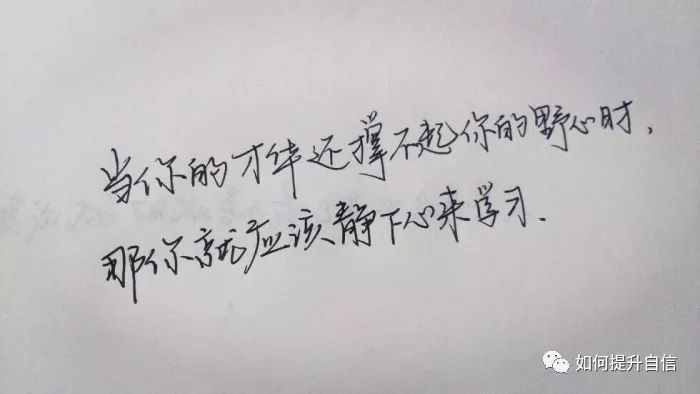 当你的才华还撑不起你的野心时,
那你就应该静下心来学习.
如何提升自信